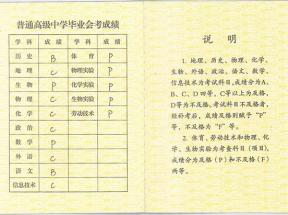 普通高级中学毕业会考成绩
学科 成绩 学科 成绩
历史 B 体育 P
地理 C 物理实验 P
生物 B 化学实验 P
物理 C 生物实验 P
化学 C 劳动技术 P
政治 C
数学 P
外语 C
语文 B
信息技术 C
说明
1. 地理、历史、物理、化学、
生物、外语、政治、语文、数学、
信息技术为考试科目,成绩分为A、
B、C、D四等,C等以上为及格,
D等为不及格。考试科目不及格者,
经补考后,成绩及格则赋予“P”
等,不及格为“F”等。
2. 体育、劳动技术和物理、化
学、生物实验为考查科目(项目),
成绩分为及格(P)和不及格(F)
两等。